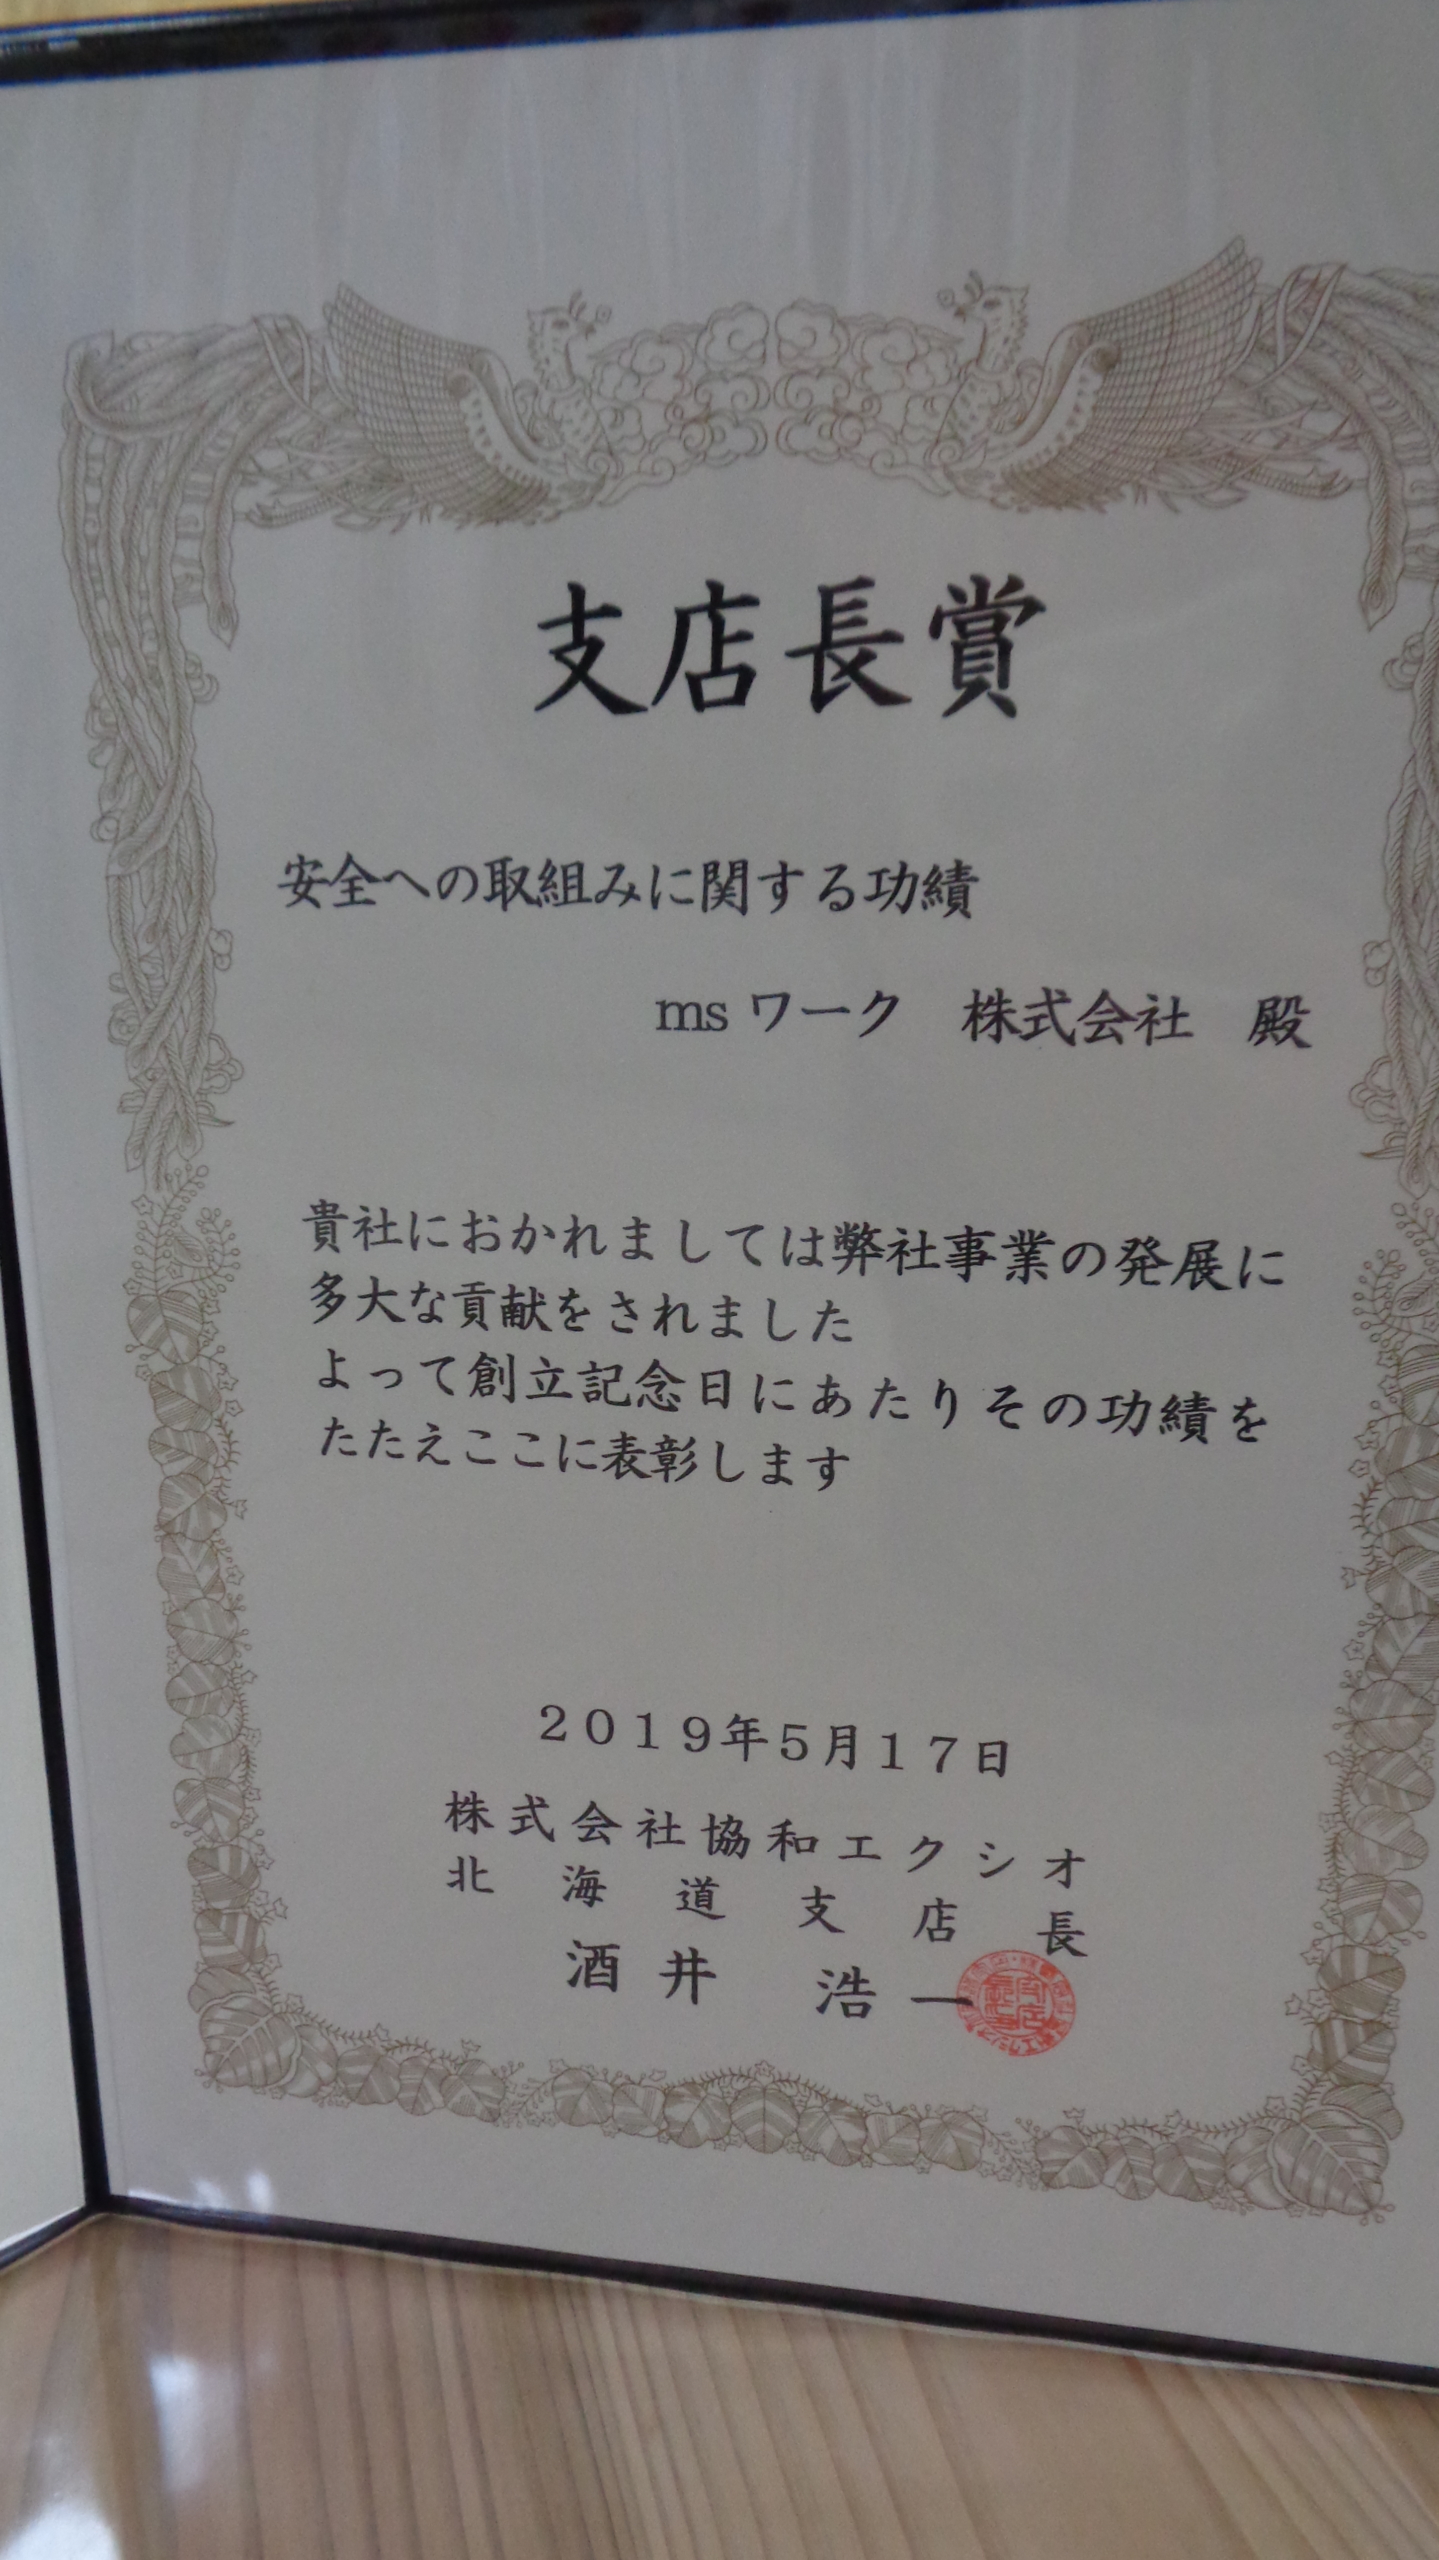 支店長賞
安全への取組みに関する功績
ms ワーク　株式会社　殿
貴社におかれましては弊社事業の発展に
多大な貢献をされました
よって創立記念日にあたりその功績を
たたえここに表彰します
２０１９年５月１７日
株式会社協和エクシオ
北海道支店長
酒井　浩一